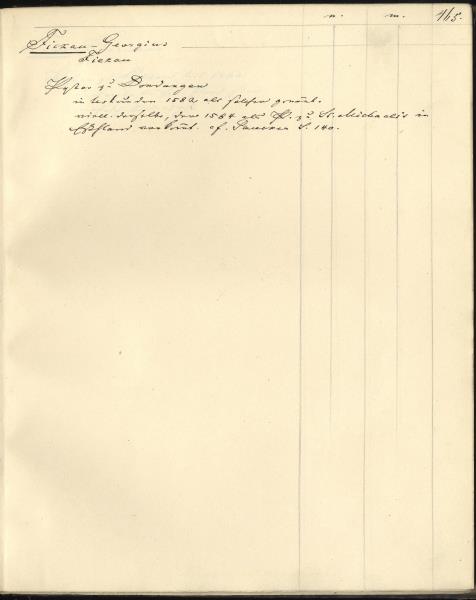 n. m. 465.
Fickau - Georgius
Fiekau
Pastor zu Dondangen
in Urkunden 1582 als solcher genannt.
viell. derselbe, der 1584 als P. zu St. Michaelis in
Estland vorkömt. cf. Paucker S. 140.